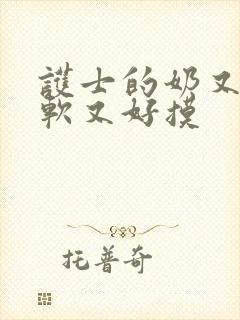 護士的奶又
軟又好摸
托普奇